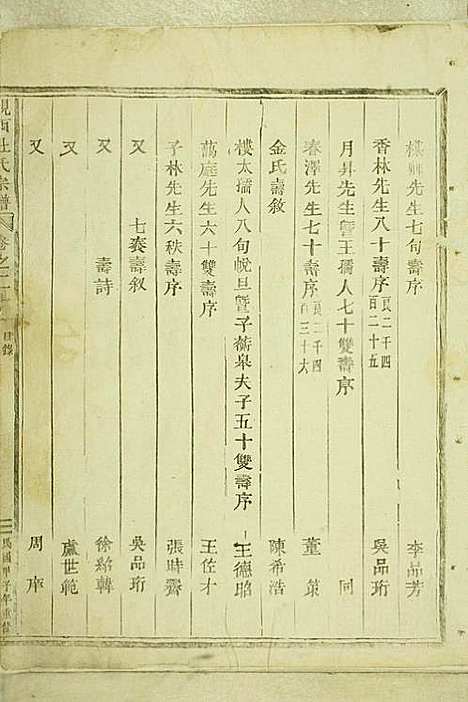 樸卿先生七旬壽序 李品芳
香林先生八十壽序 頁二千四百二十五 吳品珩
月昇先生暨王孺人七十雙壽序 同
春澤先生七十壽序 頁二千四百三十六 董策
金氏壽敘 陳希浩
樓太孺人八旬帨旦暨子蘅皋夫子五十雙壽序 王德昭
萬庭先生六十雙壽序 王佐才
子林先生六秩壽序 張時霽
又 七袠壽敘 吳品珩
又 壽詩 徐紹韓
又 盧世範
又 周庠
峴西杜氏宗譜 卷之一 目錄 民國甲子年重修